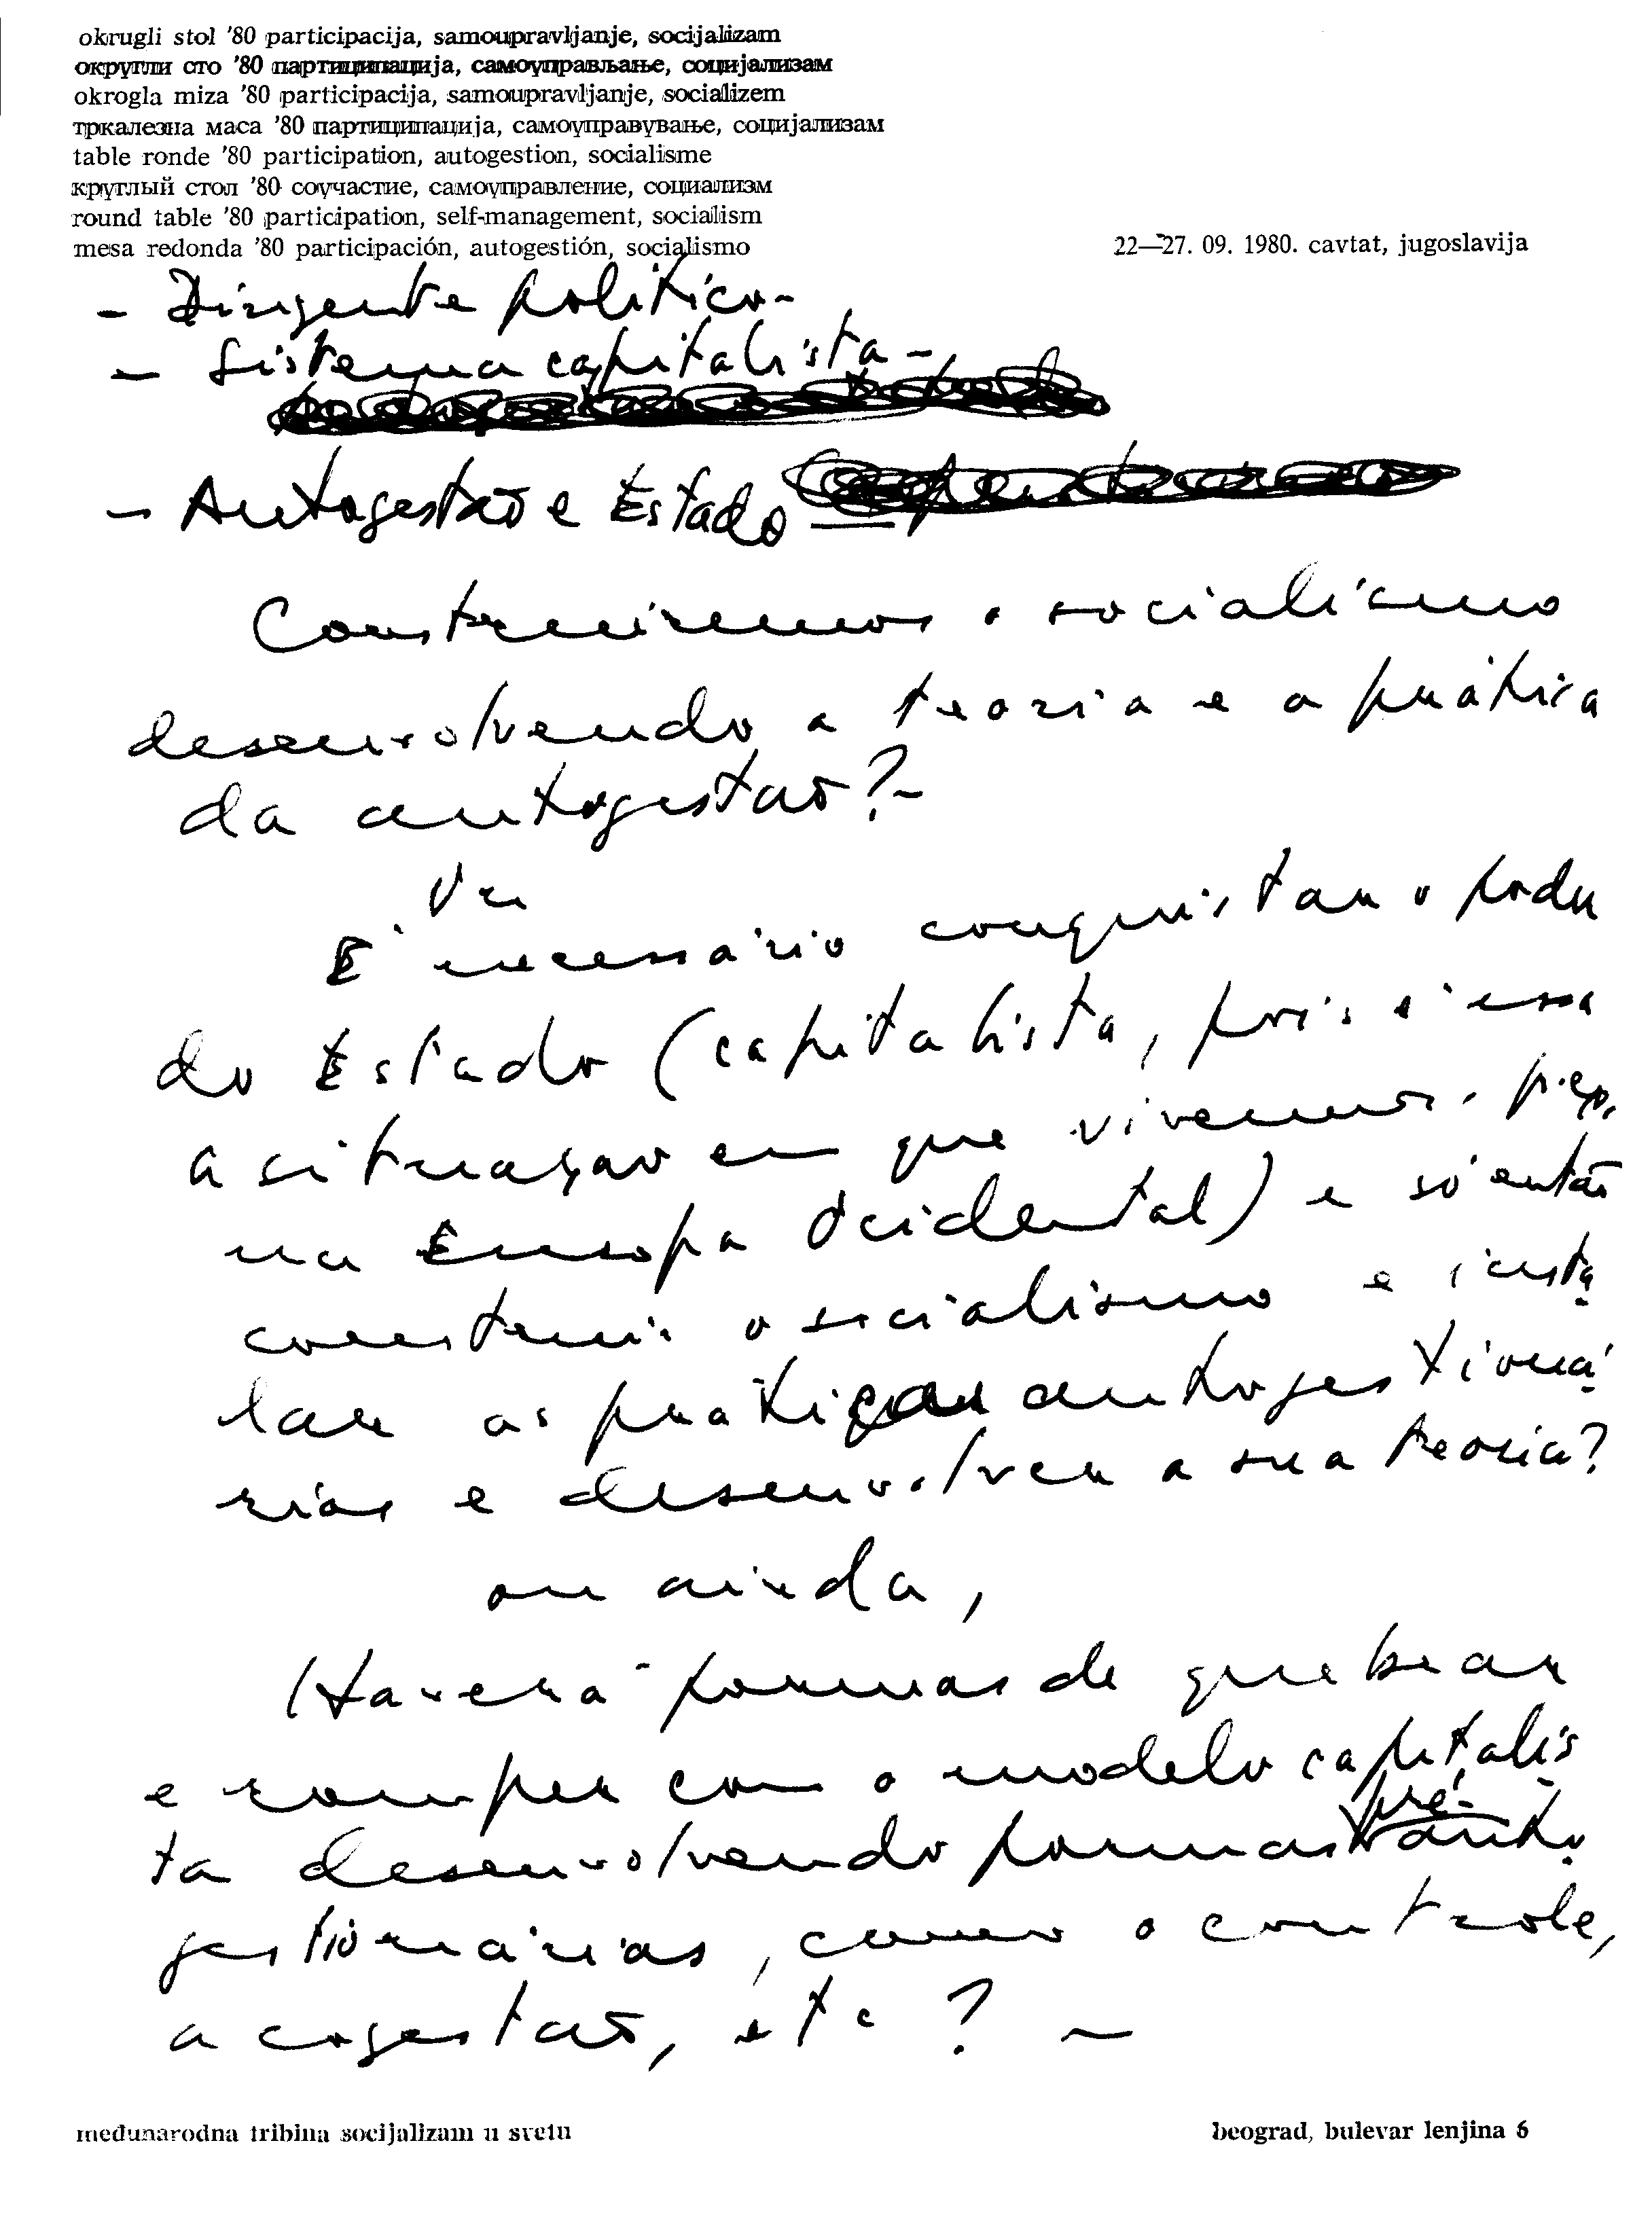 okrugli stol '80 participacija, samoupravljanje, socijalizam
округли сто '80 партиципација, самоуправљање, социјализам
okrogla miza '80 participacija, samoupravljanje, socializem
тркалезна маса '80 партиципација, самоуправување, социјализам
table ronde '80 participation, autogestion, socialisme
круглый стол '80 соучастие, самоуправление, социализм
round table '80 participation, self-management, socialism
mesa redonda '80 participación, autogestión, socialismo
22—27. 09. 1980. cavtat, jugoslavija
- Dirigente político-
- Sistema capitalista-
- Autogestão e Estado
Construiremos o socialismo
desenvolvendo a teoria e a prática
da autogestão?-
Ou
É necessário conquistar o poder
do Estado (capitalista, pois é essa
a situação em que vivemos, p. ex.,
na Europa Ocidental) e só então
construir o socialismo e insta
lar as práticas autogestioná
rias e desenvolver a sua teoria?
ou ainda,
Haverá formas de quebrar
e romper com o modelo capitalis
ta desenvolvendo formas pré-auto
gestionárias, como o controle,
a cogestão, etc? -
međunarodna tribina socijalizam u svetu
beograd, bulevar lenjina 6